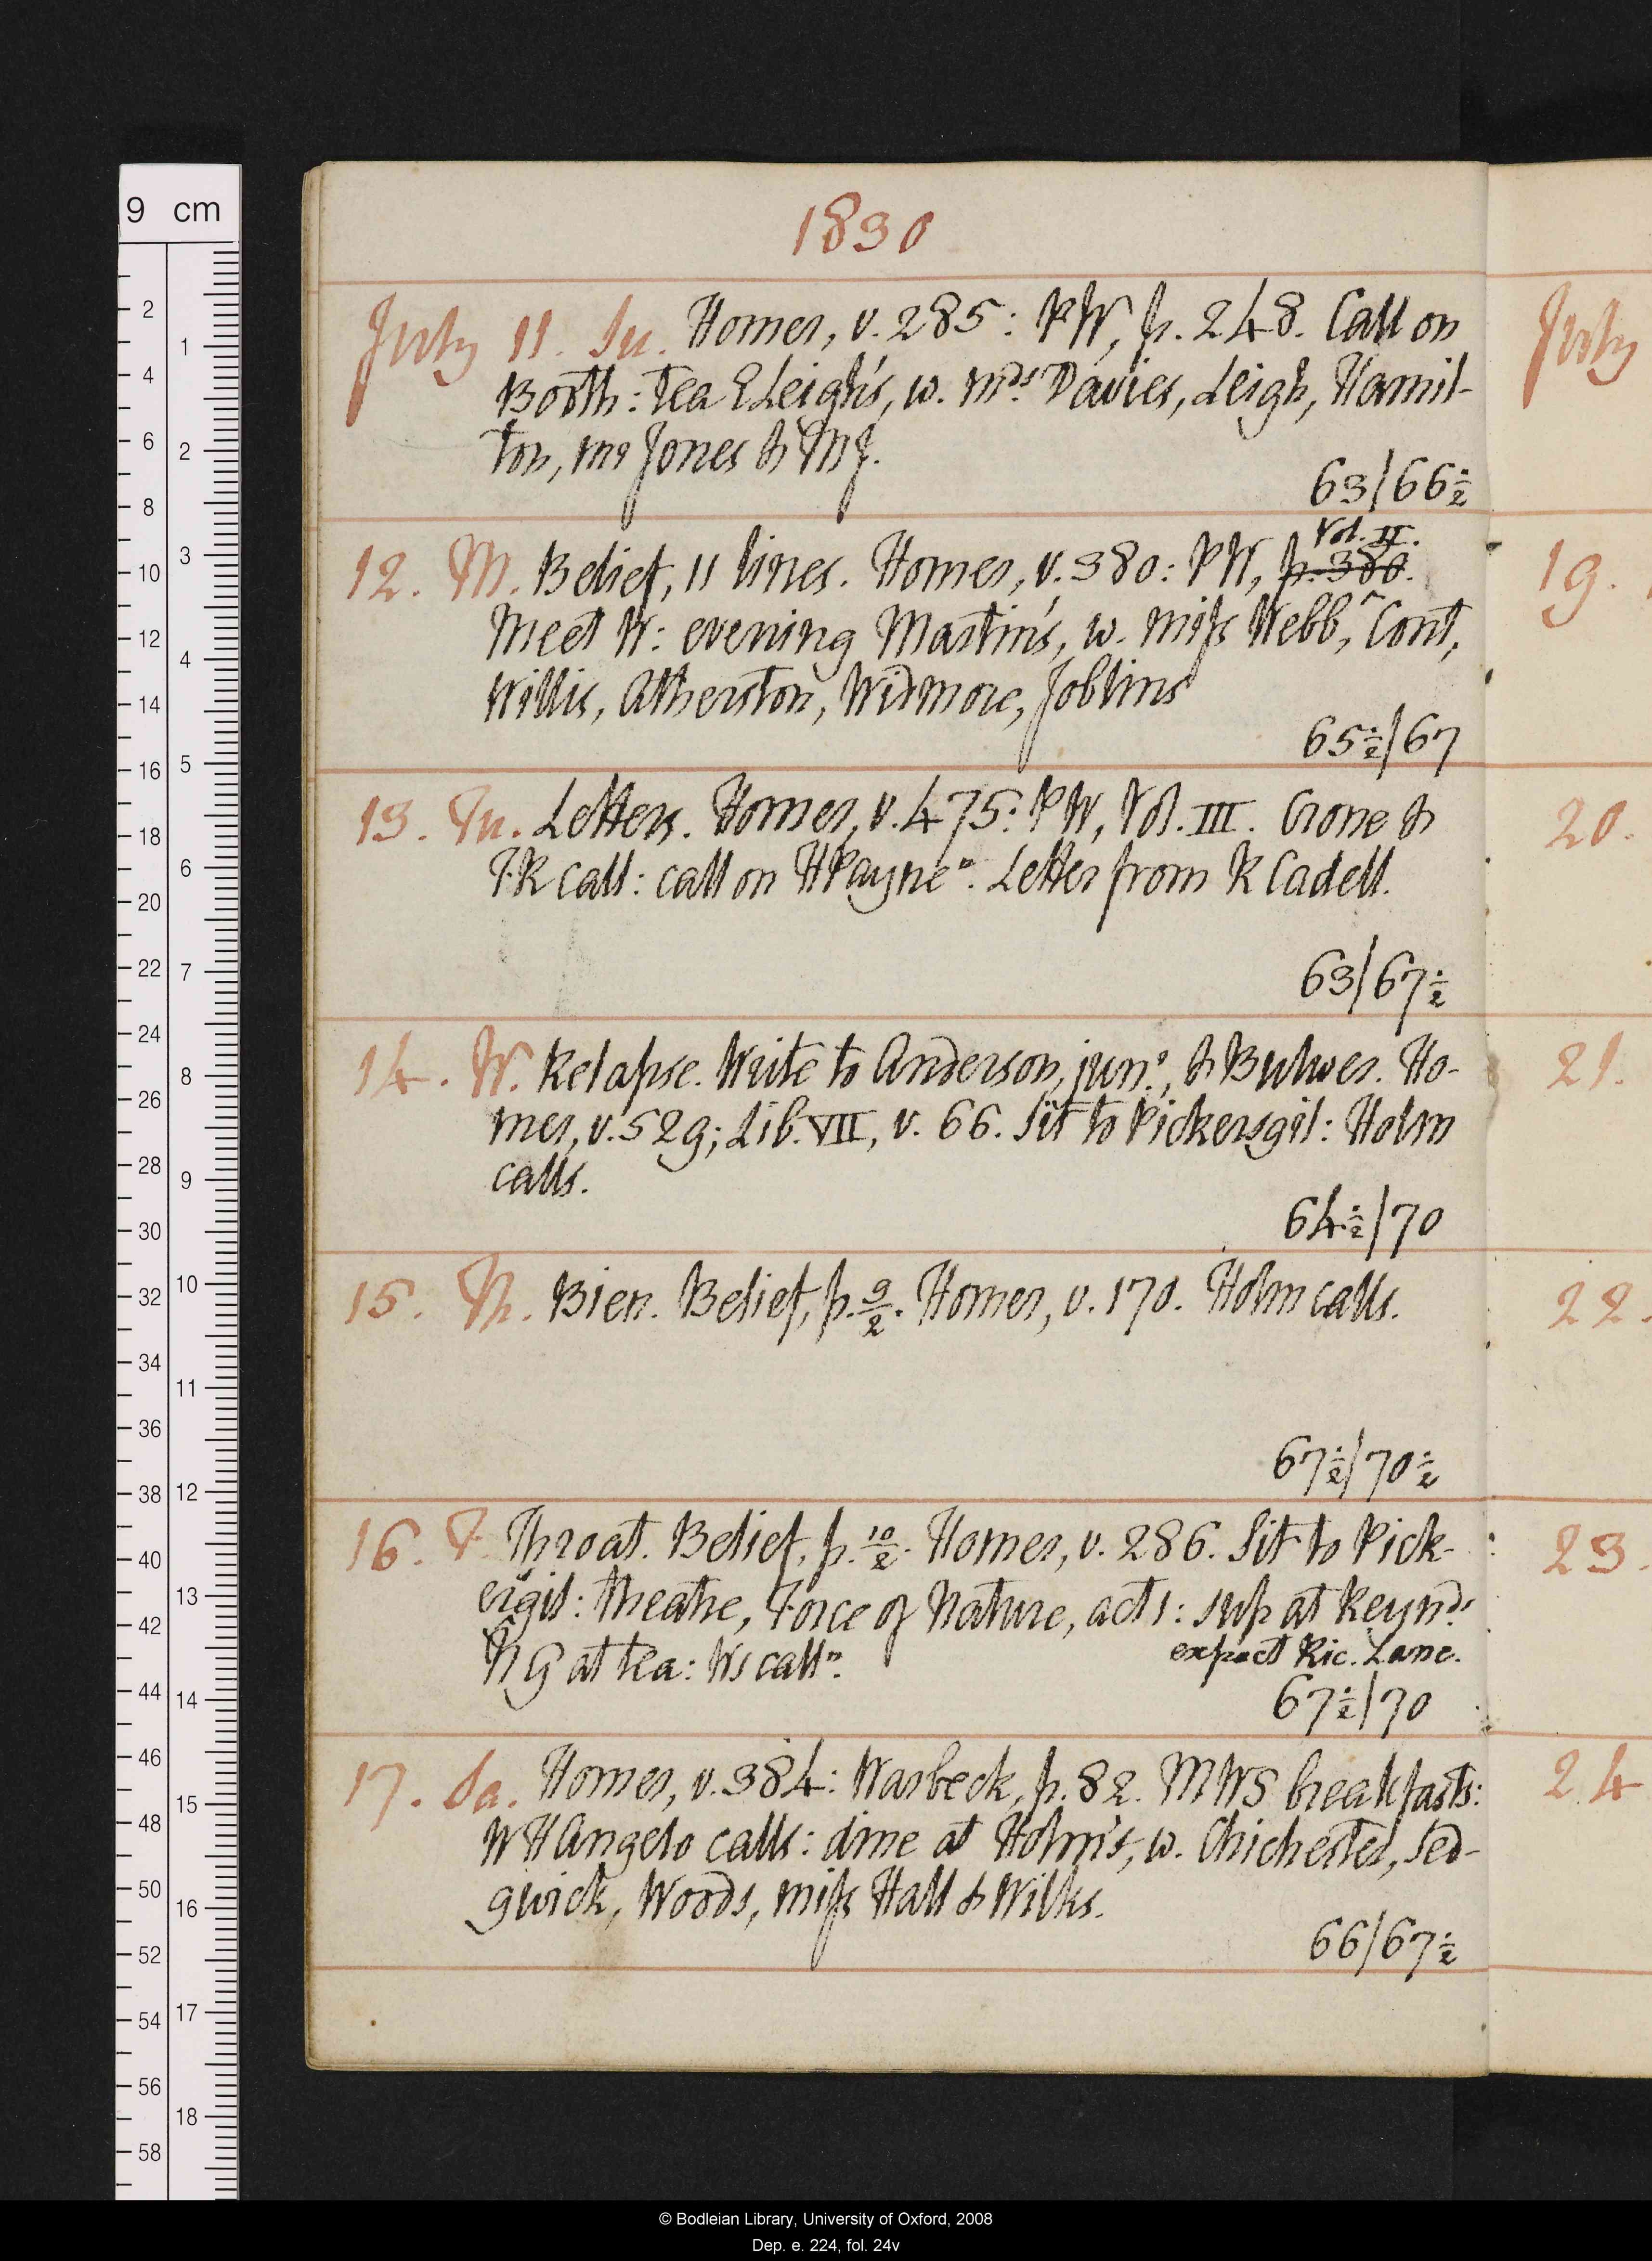 9 cm
1830
July 11. Su. Homer, v. 285: PW, p. 248. Call on
Booth: tea E Leigh's, w. mrs Davies, Leigh, Hamil-
ton, mr Jones & MJ.
63/66½
12. M. Belief, 11 lines. Homer, v. 380: PW, p. 380. Vol. II.
Meet W: evening Martin's, w. miss Webb, Cont,
Willis, Atherston, Widmore, Joblins
65½/67
13. Tu. Letters. Homer, v. 475: PW, Vol. III. Crone &
FR call: call on HPayne n. Letter from R Cadell.
63/67½
14. W. Relapse. Write to Anderson, junr, & Bulwer. Ho-
mer, v. 529; Lib. VII, v. 66. Sit to Pickersgil: Holm
calls.
64½/70
15. Th. Bien. Belief, p. 9/2. Homer, v. 170. Holm calls.
67½/70½
16. F. Throat. Belief, p. 10/2. Homer, v. 286. Sit to Pick-
ersgil: theatre, Force of Nature, act 1: sup at Reynds
NG at tea: Ws call n.
expect Ric. Lane.
67½/70
17. Sa. Homer, v. 384: Warbeck, p. 82. MWS breakfasts:
WHAngelo calls: dine at Holm's, w. Chichester, Sed-
gwick, Woods, miss Hall & Wilks.
66/67½
July
19.
20.
21.
22.
23.
24
© Bodleian Library, University of Oxford, 2008
Dep. e. 224, fol. 24v